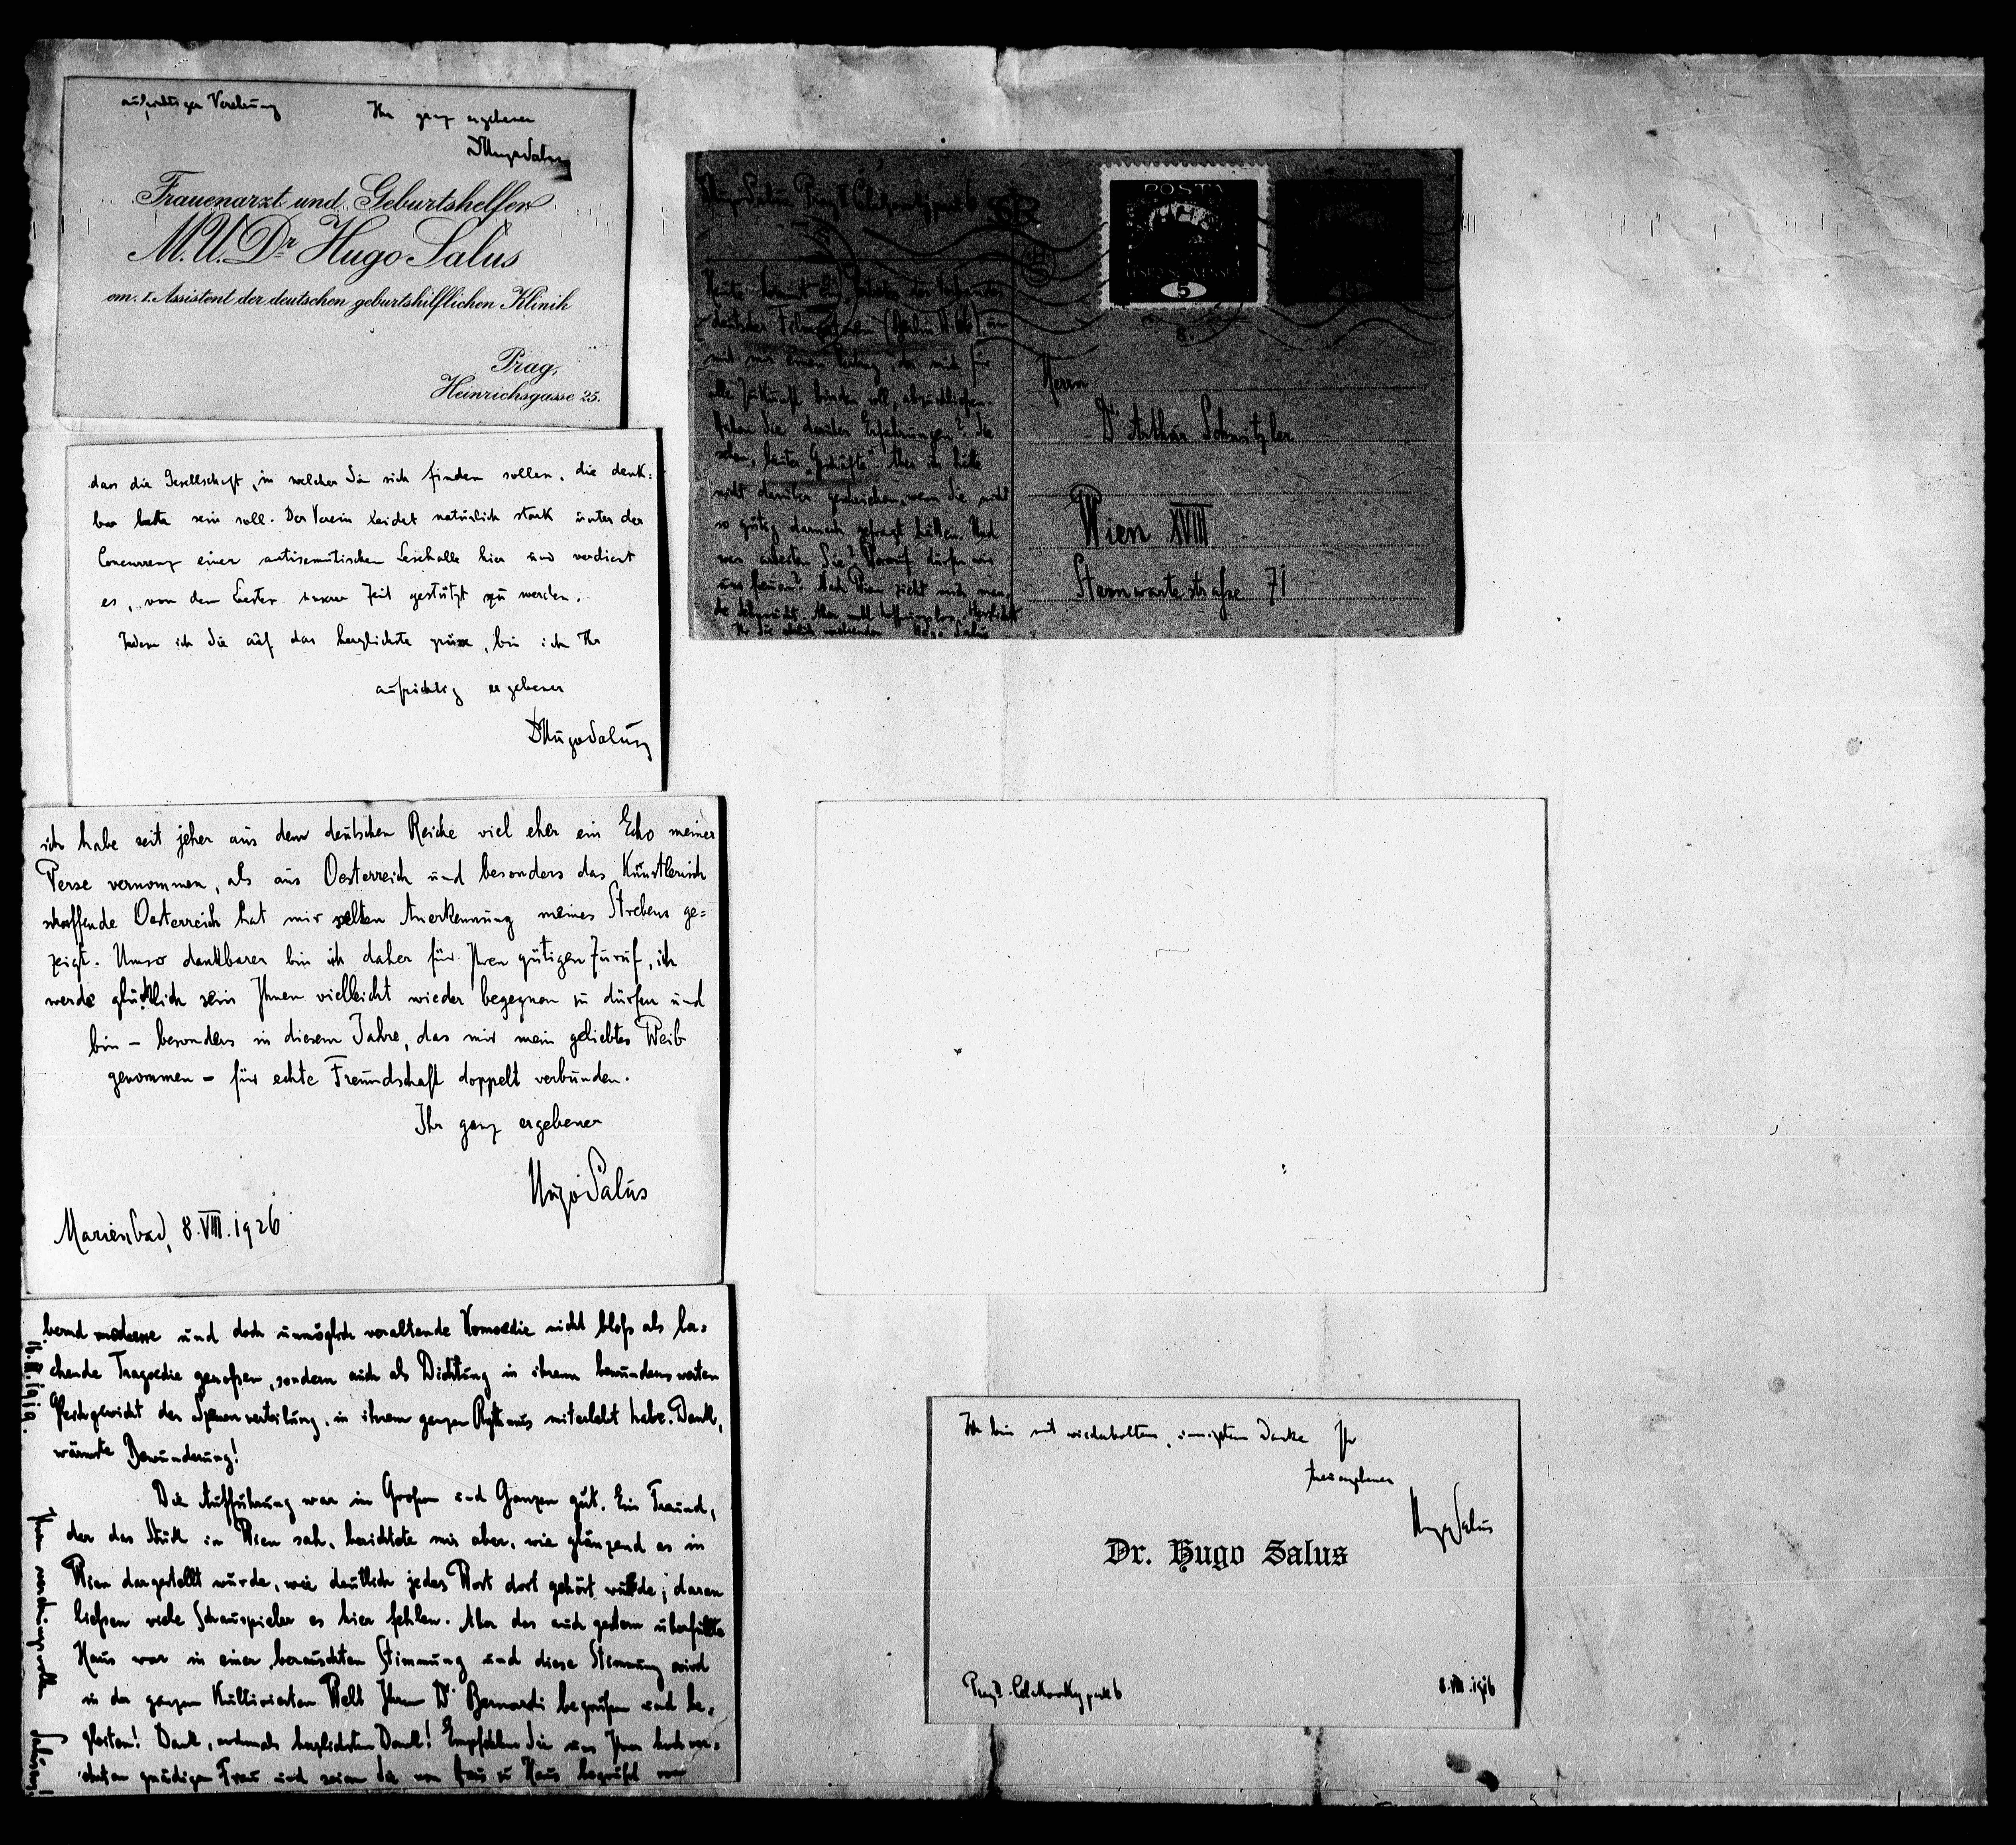 aufrichtiger Verehrung
Ihr ganz ergebener
DrHugoSalus
Frauenarzt und Geburtshelfer
M.U.Dr Hugo Salus
em. I. Assistent der deutschen geburtshilflichen Klinik
Prag,
Heinrichsgasse 25.
dass die Gesellschaft, in welcher Sie sich finden sollen, die denk=
bar beste sein soll. Der Verein leidet natürlich stark unter der
Concurrenz einer antisemitischen Lesehalle hier und verdient
es, von den Besten unserer Zeit gestützt zu werden.
Indem ich Sie auf das herzlichste grüsse, bin ich Ihr
aufrichtig ergebener
DrHugoSalus
ich habe seit jeher aus dem deutschen Reiche viel eher ein Echo meiner
Verse vernommen, als aus Oesterreich und besonders das Künstlerisch
schaffende Oesterreich hat mir selten Anerkennung meines Strebens ge=
zeigt. Umso dankbarer bin ich daher für Ihren gütigen Zuruf, ich
werde glücklich sein Ihnen vielleicht wieder begegnen zu dürfen und
bin – besonders in diesem Jahre, das mir mein geliebtes Weib
genommen – für echte Freundschaft doppelt verbunden.
Ihr ganz ergebener
Hugo Salus
Marienbad, 8.VIII.1926
bernd moderne und doch unmöglich veraltende Komoedie nicht bloß als la=
chende Tragoedie genoßen, sondern auch als Dichtung in ihrem bewundernswerten
Gleichgewicht der Szenenverteilung, in ihrem ganzen Rythmus miterlebt habe. Dank,
wärmste Bewunderung!
Die Aufführung war im Großen und Ganzen gut. Ein Freund,
der das Stück in Wien sah, berichtete mir aber, wie glänzend es in
Wien dargestellt wurde, wie deutlich jedes Wort dort gehört wurde; daran
ließen viele Schauspieler es hier fehlen. Aber das auch gestern überfüllte
Haus war in einer berauschten Stimmung und diese Stimmung wird
in der ganzen Kultivierten Welt Ihren Dr Bernardi begrüßen und be=
gleiten! Dank, nochmals herzlichsten Dank! Empfehlen Sie uns Ihrer hochver=
ehrten gnädigen Frau und seien Sie von Haus zu Haus begrüßt von
Ihrem verehrungsvollen Salus
1919.
Hugo Salus Prag
deutscher
mit mir einen Vertrag, der mich für
alle Zukunft binden soll, abzuschließen.
Haben Sie darüber Erfahrungen? Sie
sehen, lauter „Geschäfte". Aber ich hätte
nicht darüber geschrieben, wenn Sie nicht
so gütig darnach gefragt hätten. Und
was arbeiten Sie? Worauf dürfen wir
uns freuen? Nach Wien zieht mich
Ihr Sie Hugo Salus
POSTA
5
Herrn
Dr Arthur Schnitzler
Wien XVIII
Sternwartestraße 71
Ich bin mit wiederholtem, innigstem Danke Ihr
treuergebener
HugoSalus
Dr. Hugo Salus
8.VIII.1916